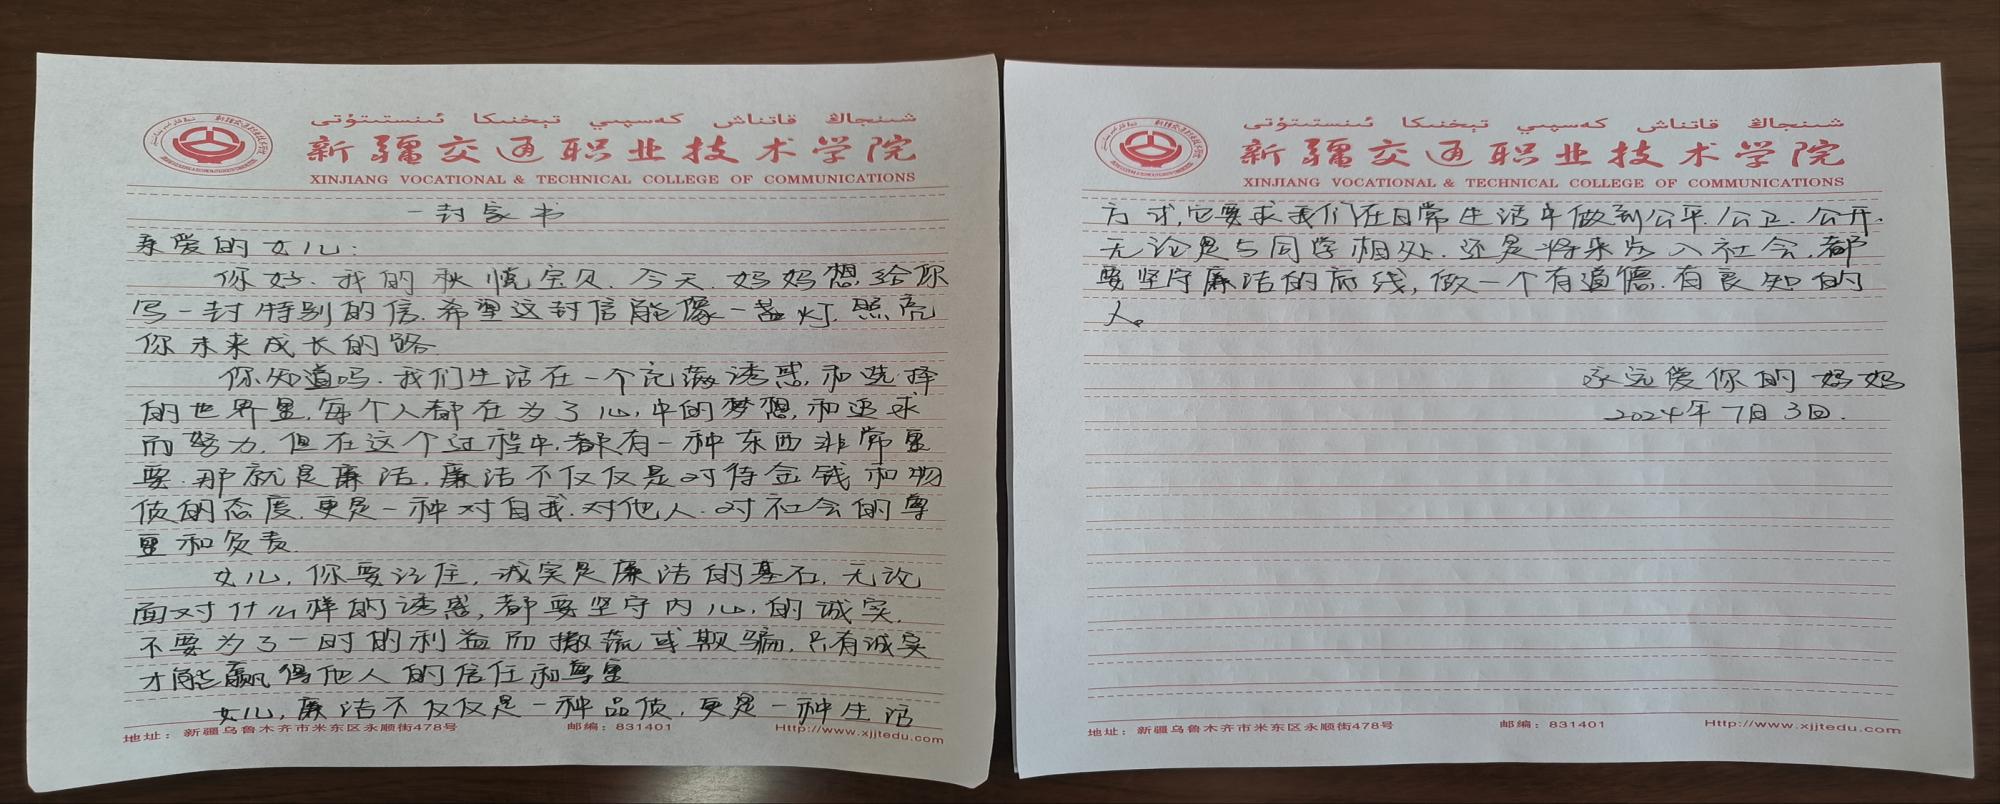 شىنجاڭ قاتناش كەسپىي تېخنىكا ئىنستىتۇتى
新疆交通职业技术学院
XINJIANG VOCATIONAL & TECHNICAL COLLEGE OF COMMUNICATIONS
一封家书
亲爱的女儿：
你好.我的秋悦宝贝.今天.妈妈想给你
写一封特别的信.希望这封信能像一盏灯.照亮
你未来成长的路.
你知道吗.我们生活在一个充满诱惑.和选择
的世界里.每个人都在为了心中的梦想.和追求
而努力.但在这个过程中.都有一种东西非常重
要.那就是廉洁.廉洁不仅仅是对待金钱和物
质的态度.更是一种对自我.对他人.对社会的尊
重和负责.
女儿，你要记住，诚实是廉洁的基石.无论
面对什么样的诱惑，都要坚守内心.的诚实.
不要为了一时的利益而撒谎或欺骗.只有诚实
才能赢得他人的信任和尊重
女儿，廉洁不仅仅是一种品质.更是一种生活
地址：新疆乌鲁木齐市米东区永顺街478号 邮编：831401 Http://www.xjjtedu.com
شىنجاڭ قاتناش كەسپىي تېخنىكا ئىنستىتۇتى
新疆交通职业技术学院
XINJIANG VOCATIONAL & TECHNICAL COLLEGE OF COMMUNICATIONS
方式，它要求我们在日常生活中做到公平.公正.公开.
无论是与同学相处.还是将来步入社会.都
要坚守廉洁的底线，做一个有道德.有良知的
人。
永远爱你的妈妈
2024年7月3日.
地址：新疆乌鲁木齐市米东区永顺街478号 邮编：831401 Http://www.xjjtedu.com